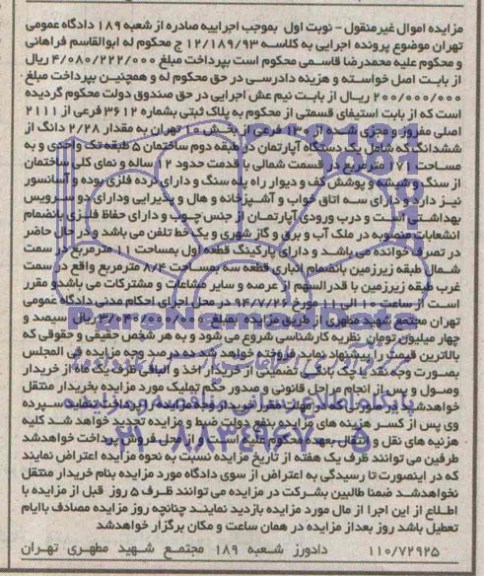 مزایده اموال غیرمنقول - نوبت اول بموجب اجراییه صادره از شعبه ۱۸۹ دادگاه عمومی
تهران موضوع پرونده اجرایی به کلاسه ۱۲/۱۸۹/۹۳ ج محکوم له ابوالقاسم فراهانی
و محکوم علیه محمدرضا قاسمی محکوم است بپرداخت مبلغ ۴/۰۸۰/۲۲۲/۰۰۰ ریال
از بابت اصل خواسته و هزینه دادرسی در حق محکوم له و همچنین بپرداخت مبلغ
۲۰۰/۰۰۰/۰۰۰ ریال از بابت نیم عش اجرایی در حق صندوق دولت محکوم گردیده
است که از بابت استیفای قسمتی از محکوم به پلاک ثبتی بشماره ۳۶۱۲ فرعی از ۲۱۱۱
اصلی مفروز و مجزی شده از ۱۳۰ فرعی از بخش ۱۰ تهران به مقدار ۲/۲۸ دانگ از
ششدانگ که شامل یک دستگاه آپارتمان در طبقه دوم ساختمان ۵ طبقه تک واحدی و به
مساحت ۱۷۱ مترمربع در قسمت شمالی با قدمت حدود ۱۲ ساله و نمای کلی ساختمان
از سنگ و شیشه و پوشش کف و دیوار راه پله سنگ و دارای نرده فلزی بوده و آسانسور
نیز دارد و دارای سه اتاق خواب و آشپزخانه و هال و پذیرایی ودارای دو سرویس
بهداشتی است و درب ورودی آپارتمان از جنس چوب و دارای حفاظ فلزی بانضمام
انشعابات منصوبه در ملک آب و برق و گاز شهری و یک خط تلفن می باشد و در حال حاضر
در تصرف خوانده می باشد و دارای پارکینگ قطعه اول بمساحت ۱۱ مترمربع در سمت
شمال طبقه زیرزمین بانضمام انباری قطعه سه بمساحت ۸/۴ مترمربع واقع در سمت
غرب طبقه زیرزمین با قدرالسهم از عرصه و سایر مشاعات و مشترکات می باشدو مقرر
است از ساعت ۱۰ الی ۱۱ مورخ ۹۴/۷/۲۶ در محل اجرای احکام مدنی دادگاه عمومی
تهران مجتمع شهید مطهری از طریق مزایده بمبلغ ۳/۰۴۰/۰۰۰/۰۰۰ ریال سیصد و
چهار میلیون تومان نظریه کارشناسی شروع می شود و به هر شخص حقیقی و حقوقی که
بالاترین قیمت را پیشنهاد نماید فروخته خواهد شد ده درصد وجه مزایده فی المجلس
بصورت وجه نقد یا چک بانکی تضمینی از خریدار اخذ و الباقی ظرف یک ماه از خریدار
وصول و پس از انجام مراحل قانونی و صدور حکم تملیک مورد مزایده بخریدار منتقل
خواهدشد در صورتی که در مهلت مقرر خریدار وجه مزایده را پرداخت ننماید سپرده
وی پس از کسر هزینه های مزایده بنفع دولت ضبط و مزایده تجدید خواهد شد کلیه
هزینه های نقل و انتقال بعهده محکوم علیه است و از محل فروش پرداخت خواهدشد
طرفین می توانند ظرف یک هفته از تاریخ مزایده نسبت به نحوه مزایده اعتراض نمایند
که در اینصورت تا رسیدگی به اعتراض از سوی دادگاه مورد مزایده بنام خریدار منتقل
نخواهدشد ضمنا طالبین بشرکت در مزایده می توانند ظرف ۵ روز قبل از مزایده با
اطلاع از این اجرا از مال مورد مزایده بازدید نمایند چنانچه روز مزایده مصادف باایام
تعطیل باشد روز بعداز مزایده در همان ساعت و مکان برگزار خواهدشد
۱۱۰/۷۲۹۲۵ دادورز شعبه ۱۸۹ مجتمع شهید مطهری تهران
ParsNamadData